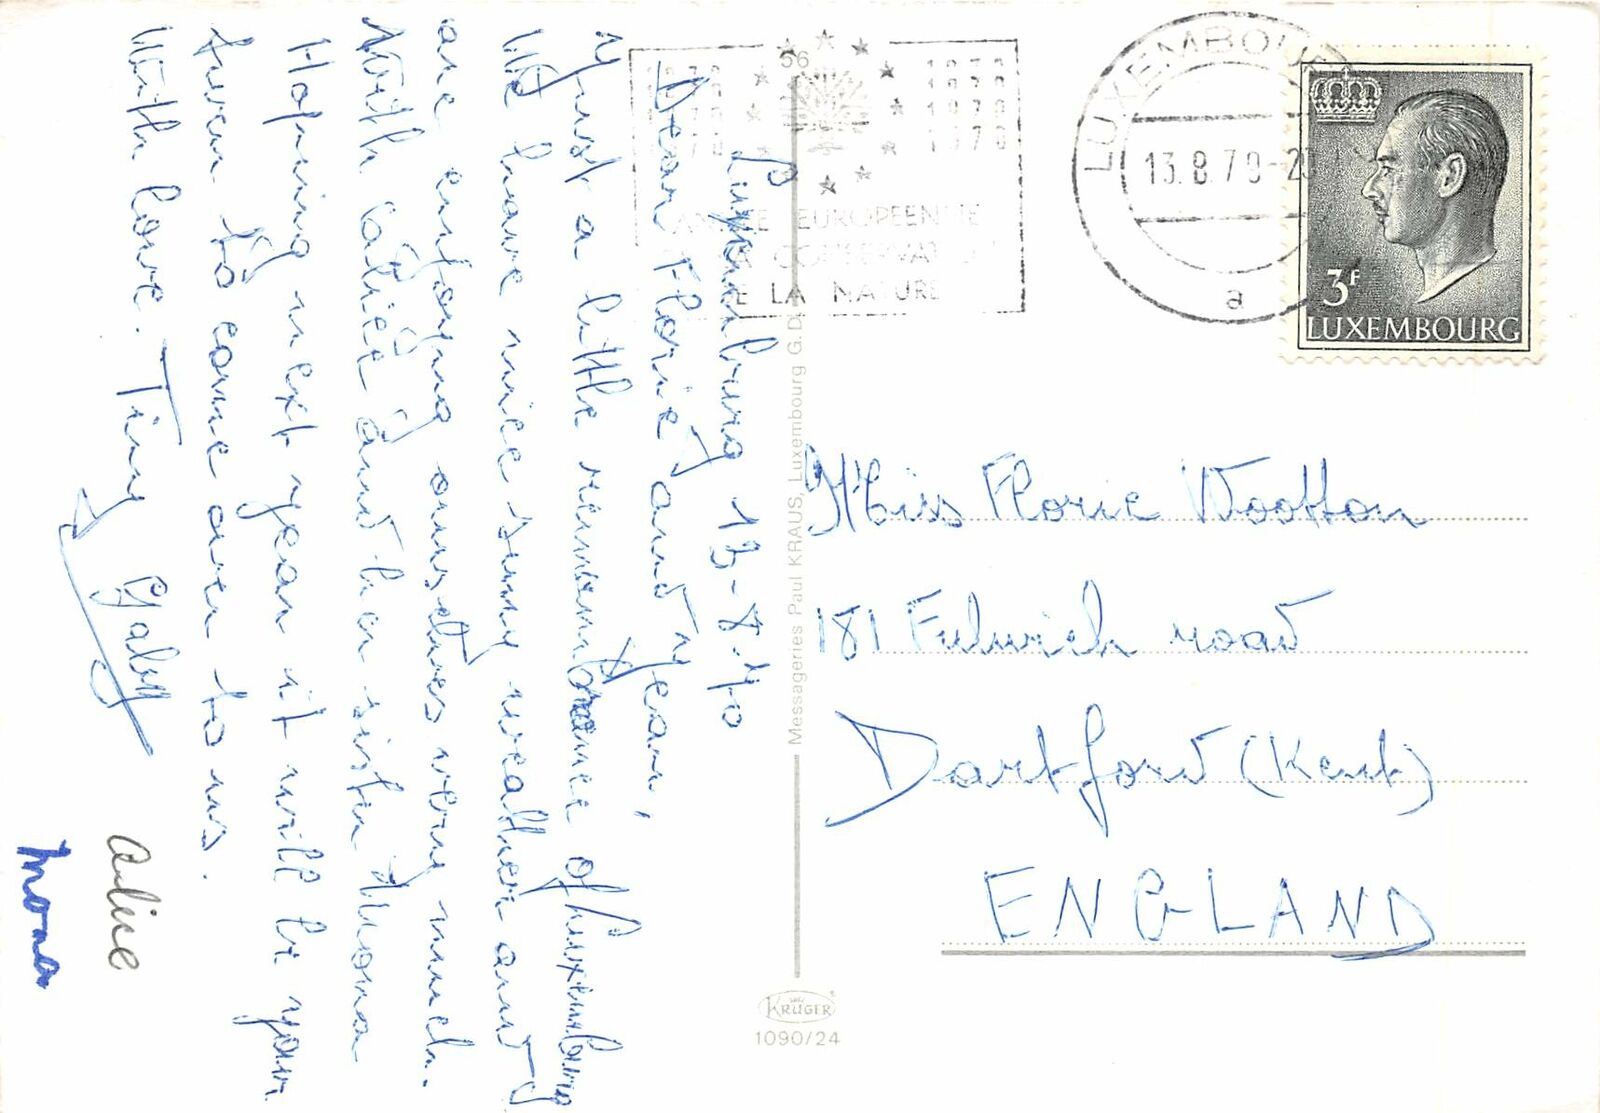 Luxemburg 13-8-70
Dear Florie and Jean,
Just a little remembrance of Luxemburg
We have nice sunny weather and
are enjoying ourselves very much.
With Calice and her sister Mona
Hoping next year it will be your
turn to come over to us.
With love. Tiny Gaby
aline
mona
56
1970 1970
1970 1970
1970 1970
1970 1970
ANNEE EUROPEENNE
LA CONSERVATION
DE LA NATURE
LUXEMBOURG
13.8.70-2
a
3F
LUXEMBOURG
Messageries Paul KRAUS, Luxembourg G. D.
Miss Florie Wootton
181 Fulwich road
Dartford (Kent)
ENGLAND
KRÜGER
1090/24